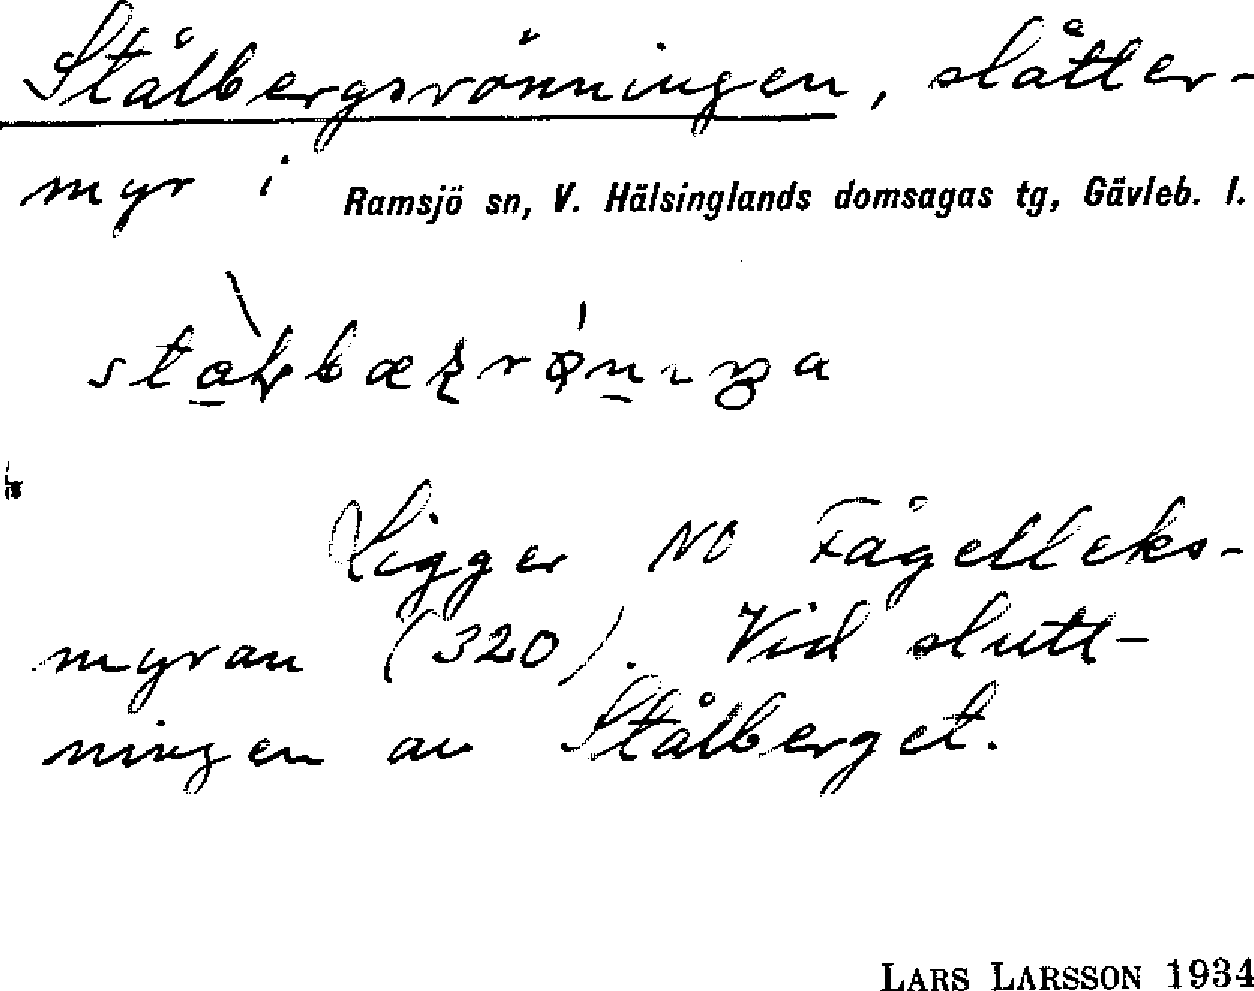 Stålbergsrönningen, slåtter-
myr i Ramsjö sn, V. Hälsinglands domsagas tg, Gävleb. l.
Ligger NO Fågelleks-
myran (320). Vid slutt-
ningen av Stålberget.
LARS LARSSON 1934